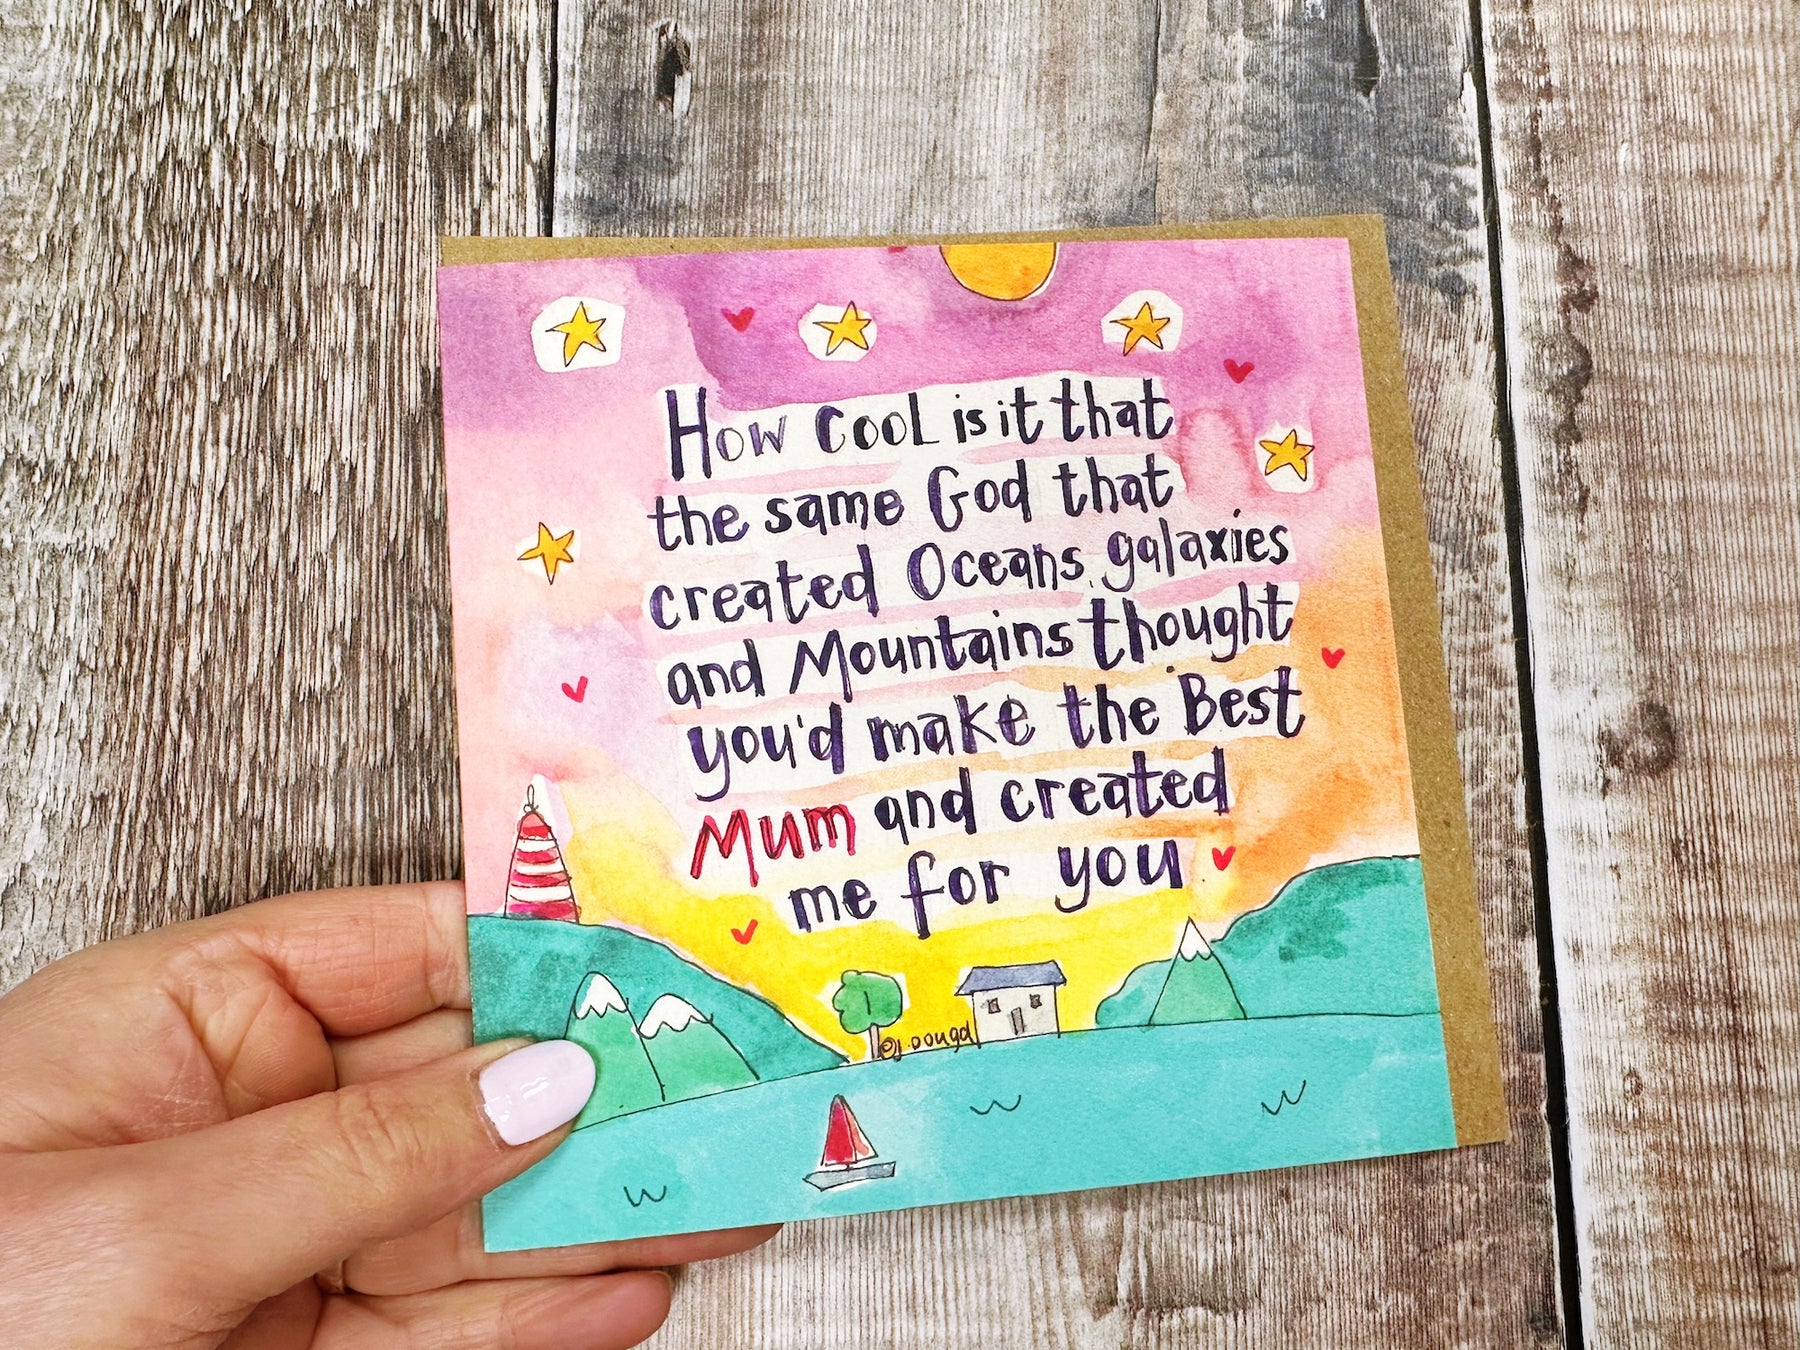 How cool is it that
the same God that
created Oceans, galaxies
and Mountains thought
you'd make the Best
Mum and created
me for you
@j.dougal